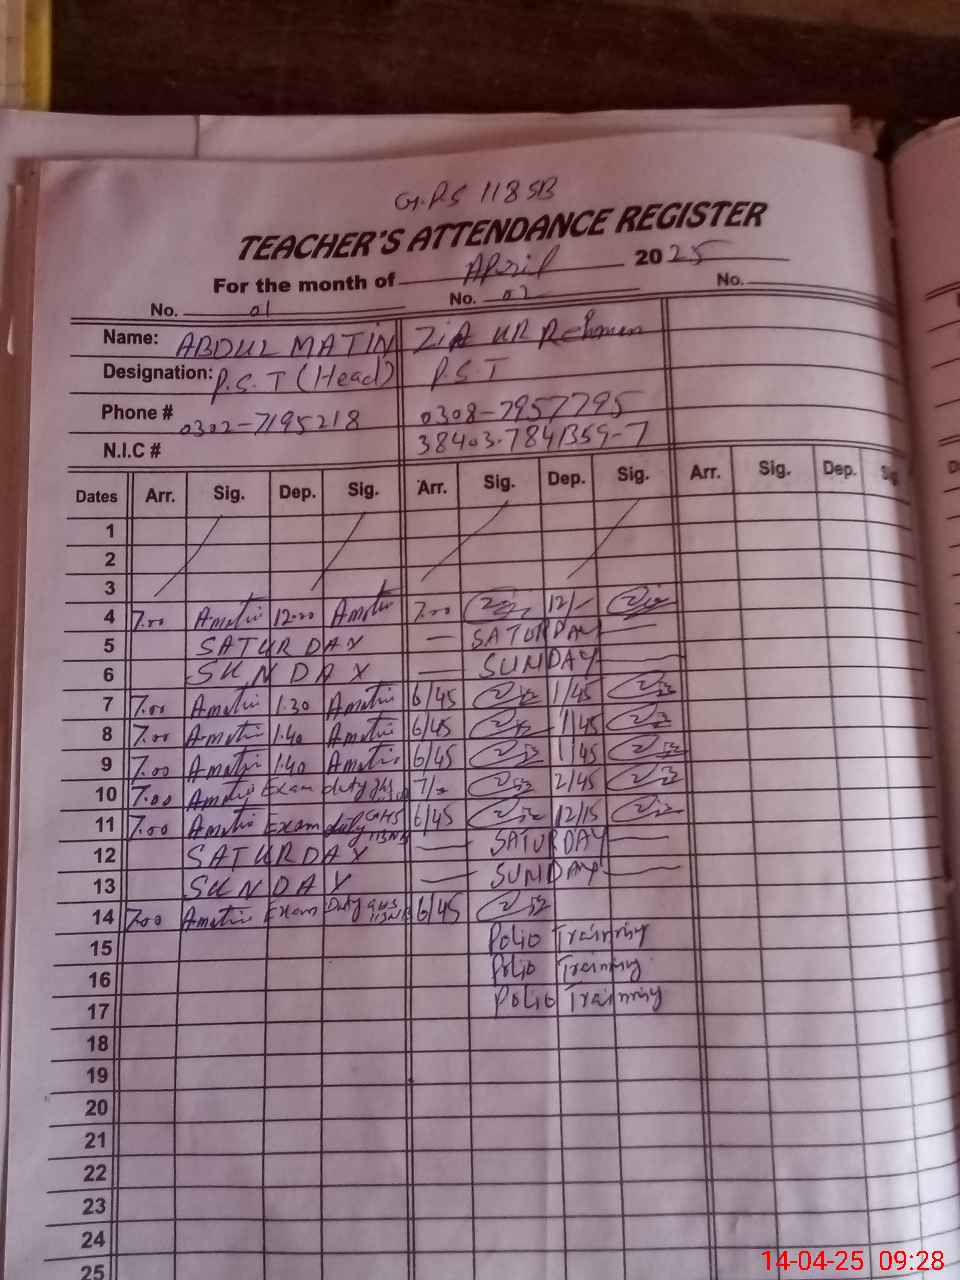 G.P.S 118 SB
TEACHER'S ATTENDANCE REGISTER
For the month of April 2025
No. 01 No. 02 No.
Name: ABDUL MATIN Zia UR Rehman
Designation: P.S.T (Head) P.S.T
Phone # 0302-7195218 0308-7957795
N.I.C # 38403-7841359-7
Dates Arr. Sig. Dep. Sig. Arr. Sig. Dep. Sig. Arr. Sig. Dep.
1
2
3
4 7.00 Amatin 12.00 Amatin 7.00 12/-
5 SATURDAY — SATURDAY —
6 SUNDAY — SUNDAY —
7 7.00 Amatin 1.30 Amatin 6/45 1/45
8 7.00 Amatin 1.40 Amatin 6/45 1/45
9 7.00 Amatin 1.40 Amatin 6/45 1/45
10 7.00 Amatin Exam duty 7/- 2/45
11 7.00 Amatin Exam duty GHS 113NB 6/45 12/15
12 SATURDAY — SATURDAY —
13 SUNDAY — SUNDAY —
14 7.00 Amatin Exam Duty GHS 113NB 6/45
15 Polio Training
16 Polio Training
17 Polio Training
18
19
20
21
22
23
24
25
14-04-25 09:28